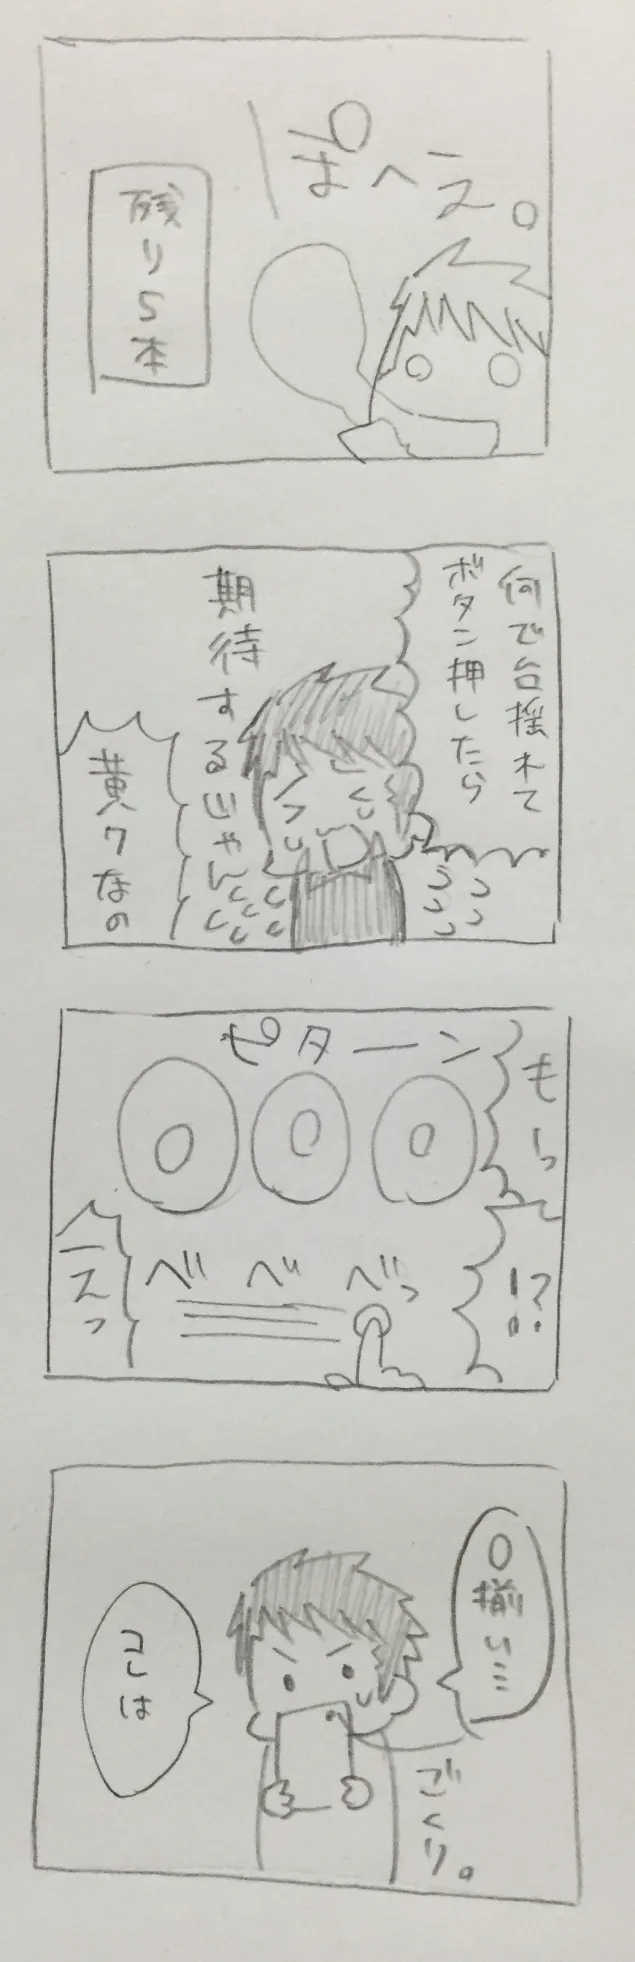 ぽへえー。
残り5本
何で台揺れて
ボタン押したら
期待するじゃん
黄7なの
ピターン
もーっ
!?
べ べ べっ
えっ
0揃い…
ごくり。
コレは